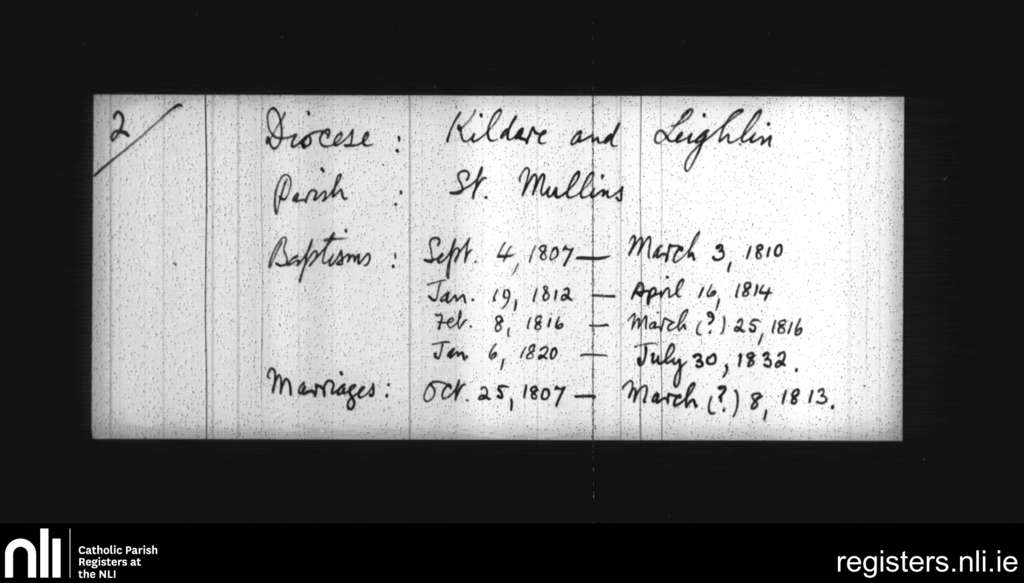 2
Diocese : Kildare and Leighlin
Parish : St. Mullins
Baptisms : Sept. 4, 1807 — March 3, 1810
Jan. 19, 1812 — April 16, 1814
Feb. 8, 1816 — March (?) 25, 1816
Jan 6, 1820 — July 30, 1832.
Marriages : Oct. 25, 1807 — March (?) 8, 1813.
nli
Catholic Parish
Registers at
the NLI
registers.nli.ie